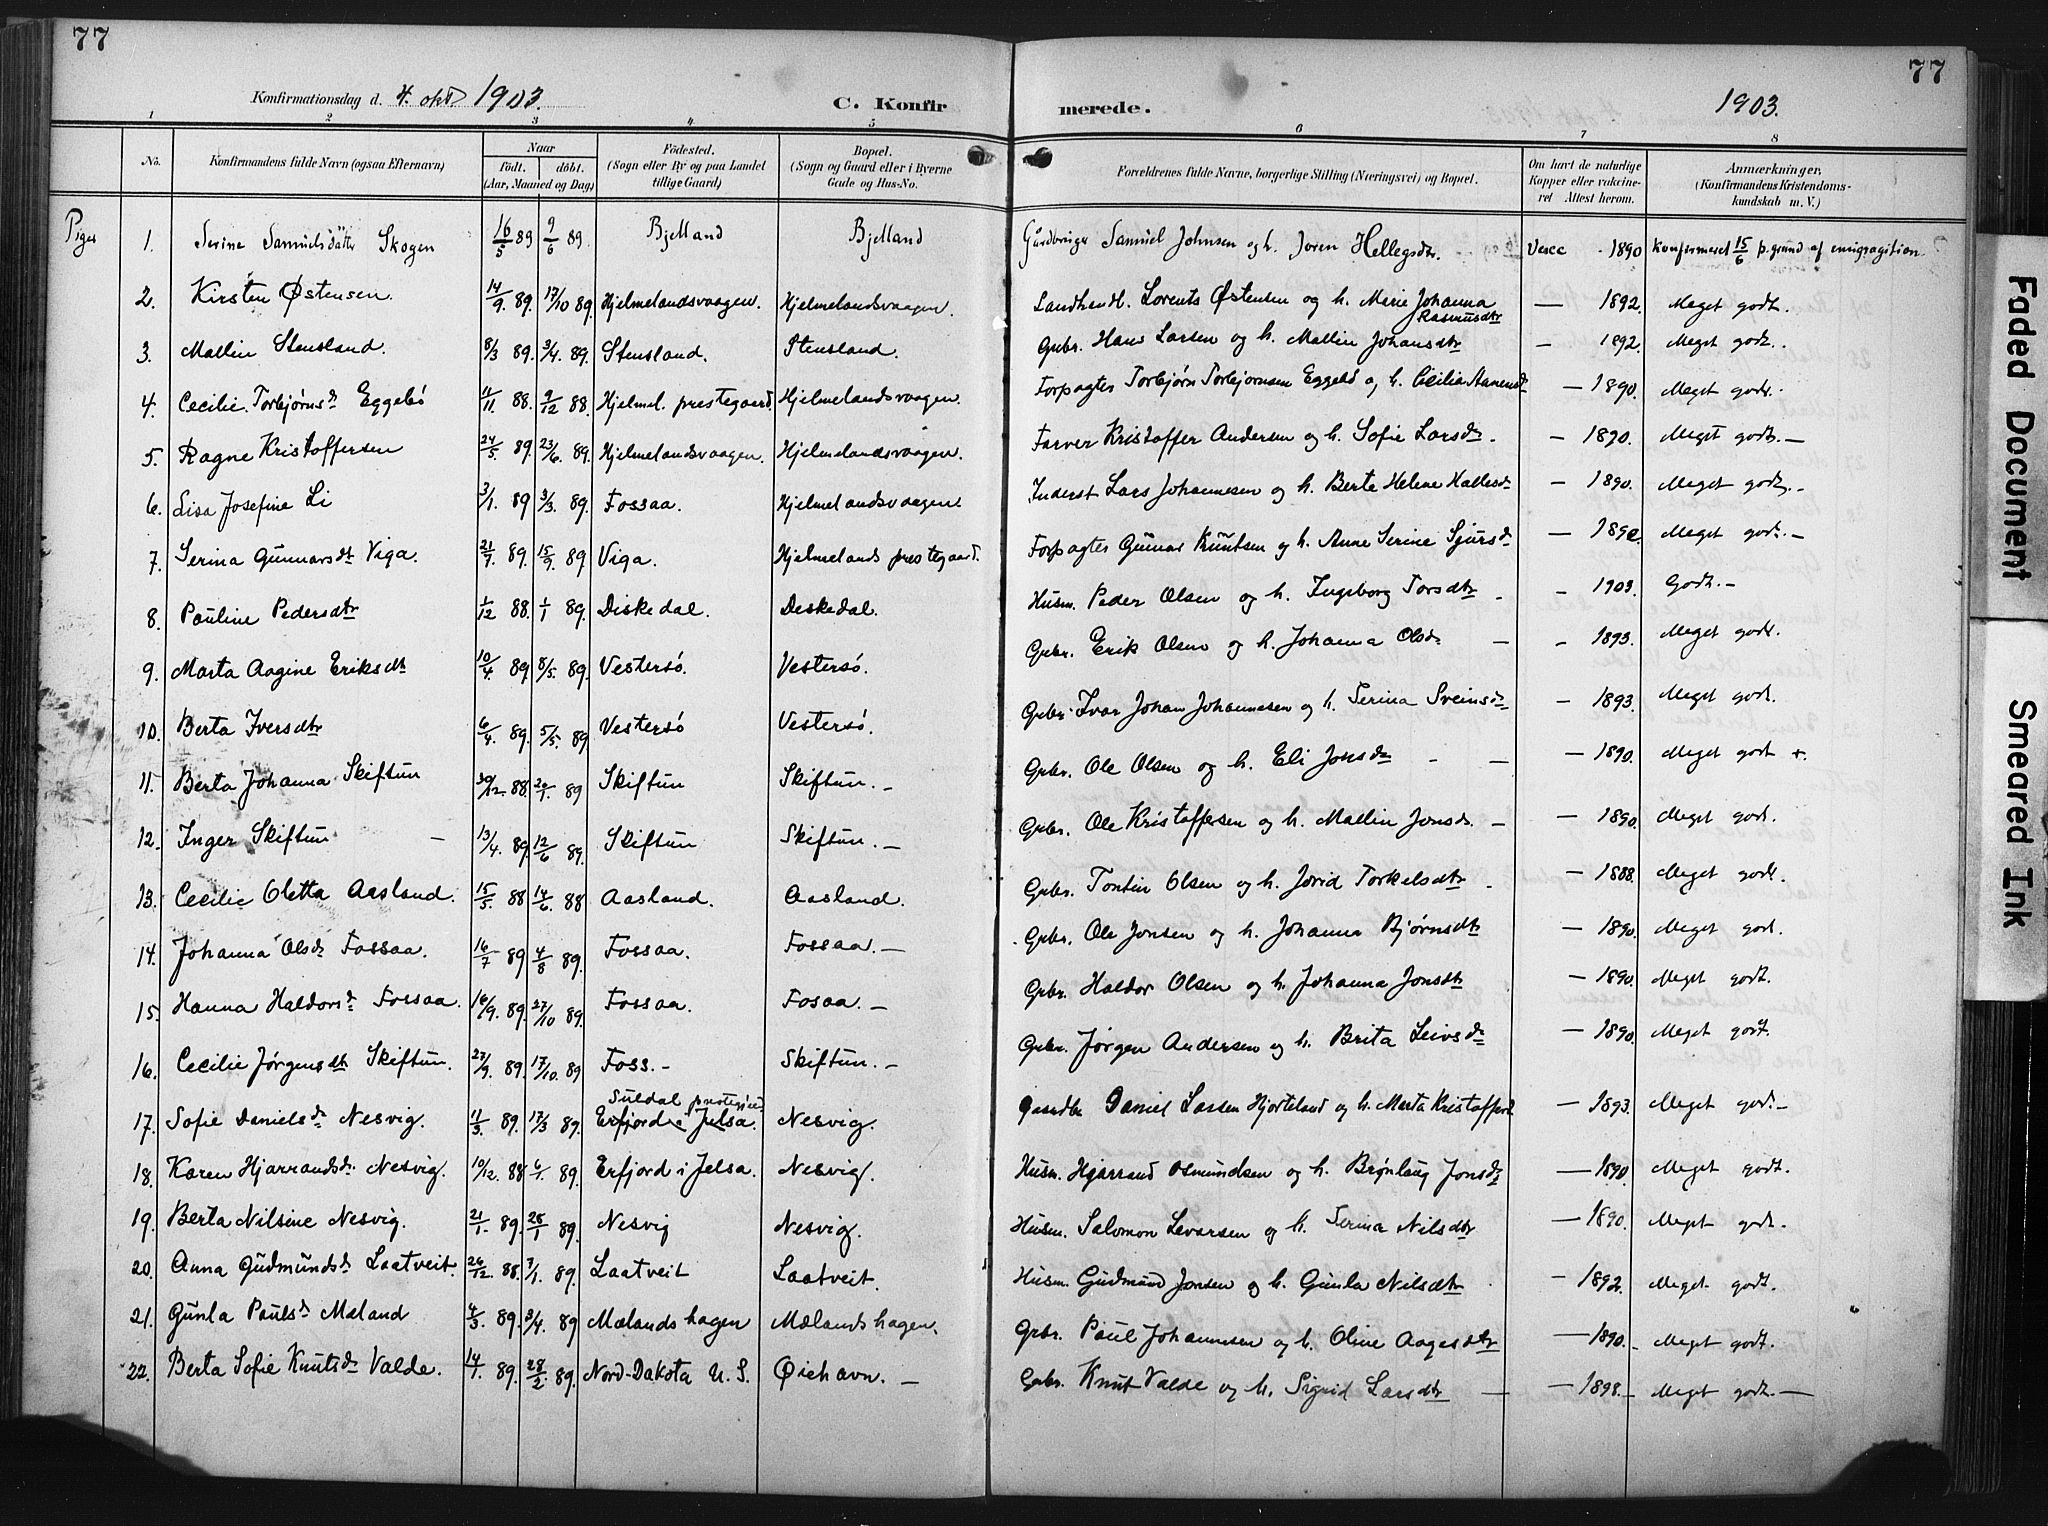 77
77
Konfirmationsdag d. 4. okt. 1903.
C. Konfirmerede.
1903.
1 2 3 4 5 6 7 8
No.
Konfirmandens fulde Navn (ogsaa Efternavn)
Naar
Født. døbt.
(Aar, Maaned og Dag)
Fødested.
(Sogn eller By og paa Landet
tillige Gaard)
Bopæl.
(Sogn og Gaard eller i Byerne
Gade og Hus-No.
Forældrenes fulde Navne, borgerlige Stilling (Næringsvei) og Bopæl.
Om havt de naturlige
Kopper eller vakcine-
ret Attest herom.
Anmærkninger.
(Konfirmandens Kristendoms-
kundskab m. V.)
Piger
1. Serine Samuelsdatter Skogen 16/5 89 9/6 89. Bjelland Bjelland Gårdbruger Samuel Johnsen og h. Joren Hellegsdtr. Vacc - 1890 Konfirmeret 15/6 p. grund af emigragition
2. Kirsten Østensen. 14/9 89. 17/10 89. Hjelmelandsvaagen. Hjelmelandsvaagen. Landhandl. Lorents Østensen og h. Marie Johanna Rasmusdtr — 1892. Meget godt.
3. Mallin Stensland. 8/3 89. 3/4. 89. Stensland. Stensland. Gbr. Hans Larsen og h. Mallin Johansdtr — 1892. Meget godt.
4. Cecilie Torbjørnsd. Eggebø 11/11 88. 9/12 88. Hjelmel. prestegaard. Hjelmelandsvaagen. Forpagter Torbjørn Torbjørnsen Eggebø og h. Cecilia — 1890. Meget godt.
5. Ragne Kristoffersen 24/5 89. 23/6. 89. Hjelmelandsvaagen. Hjelmelandsvaagen. Farver Kristoffer Andersen og h. Sofie Larsd. — 1890. Meget godt. —
6. Lisa Josefine Li 3/1. 89 3/3. 89. Fossaa. Hjelmelandsvaagen. Inderst Lars Johannesen og h. Berte Helene — 1890. Meget godt. —
7. Serina Gunnarsdt Viga. 21/7 89. 15/9 89 Viga. Hjelmelands prestegaard. Forpagter Gunnar Knutsen og h. Anne Serine Sjursd. — Meget godt. —
8. Pauline Pedersdtr 1/12 88. 1/1 89. Diskedal. Deskedal. Husm. Peder Olsen og h. Ingeborg Torsdtr - — 1903. Godt. —
9. Marta Aagine Eriksdt 10/4 89. 8/5. 89. Vestersø. Vestersø. Gbr. Erik Olsen og h. Johanna Olsd. — - 1893. Meget godt.
10. Berta Iversdtr 6/4 89. 5/5. 89 Vestersø Vestersø. Gbr. Ivar Johan Johannesen og h. Serina Sveinsd. — 1893. Meget godt.
11. Berta Johanna Skiftun 30/12. 88. 20/1. 89 Skiftun Skiftun. — Gbr. Ole Olsen og h. Eli Jonsd. - — — 1890. Meget godt +.
12. Inger Skiftun — 13/4. 89. 12/6 89. Skiftun Skiftun. — Gbr. Ole Kristoffersen og h. Mallin Jonsd. — — 1890. Meget godt.
13. Cecilie Oletta Aasland. 15/5. 88 14/6. 88 Aasland. Aasland. Gbr. Olsen og h. Torkelsdtr - — 1888. Meget godt.
14. Johanna Olsd. Fossaa. 16/7 89 4/8 89. Fossaa. Fossaa. — Gbr. Ole Jonsen og h. Johanna Bjørnsdtr — 1890. Meget godt.
15. Hanna Haldorsd. Fossaa. 16/9. 89. 27/10 89. Fossaa. Fosaa. — Gbr. Haldor Olsen og h. Johanna Jonsdtr — 1890. Meget godt.
16. Cecilie Jørgensdt Skiftun. 27/9. 89. 17/10. 89 Foss. — Skiftun. — Gbr. Jørgen Andersen og h. Brita Leivsd. — 1890. Meget godt.
17. Sofie Danielsd. Nesvig. 11/3. 89. 17/3 89. Suldal prestegjeld Erfjord i Jelsa. Nesvig. Gaardbr Daniel Larsen Hjorteland og h. Marta Kristoffersd. — 1893. Meget godt. —
18. Karen Hjarrandsd. Nesvig. 10/12. 88 6/1. 89. Erfjord i Jelsa. Nesvig. Husm. Hjarrand Osmundsen og h. Brønlaug Jonsd. — 1890. Meget godt.
19. Berta Nilsine Nesvig. 21/1. 89. 28/1 89. Nesvig Nesvig. Husm. Salomon Levarsen og h. Serina Nilsdtr — 1890. Meget godt.
20. Anna Gudmundsd. Laatveit. 26/12. 88. 7/1. 89. Laatveit Laatveit. Husm. Gudmund Jonsen og h. Gunla Nilsdtr - — 1892. Meget godt.
21. Gunla Paulsd Mæland 4/3. 89. 3/4. 89 Mælandshagen Mælandshagen. Gbr. Paul Johannesen og h. Oline Aagesdtr — 1890. - Meget godt.
22. Berta Sofie Knutsd. Valde. 14/1. 89. 28/2. 89. Nord-Dakota U. S. Øiehavn. — Gbr. Knut Valde og h. Sigrid Larsdtr — — 1898. — Meget godt. —
Faded Document
Smeared Ink